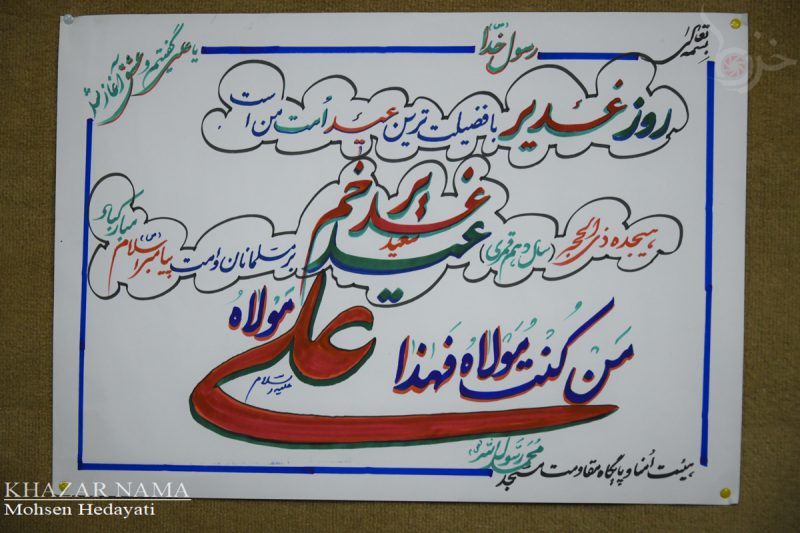 بسمه تعالی
رسول خدا (ص)
یا علی گفتیم و عشق آغاز شد
روز غدیر با فضیلت ترین عید اُمت من است
عید سعید غدیر خم
هیجده ذی الحجه (سال دهم قمری) بر مسلمانان و امت پیامبر اسلام (ص) مبارکباد
مَن کُنتُ مَولاهُ فَهذا علی مَولاهُ
علیه السلام
هیئت اُمنا و پایگاه مقاومت مسجد محمد رسول الله (ص)
خزر
KHAZAR NAMA
Mohsen Hedayati